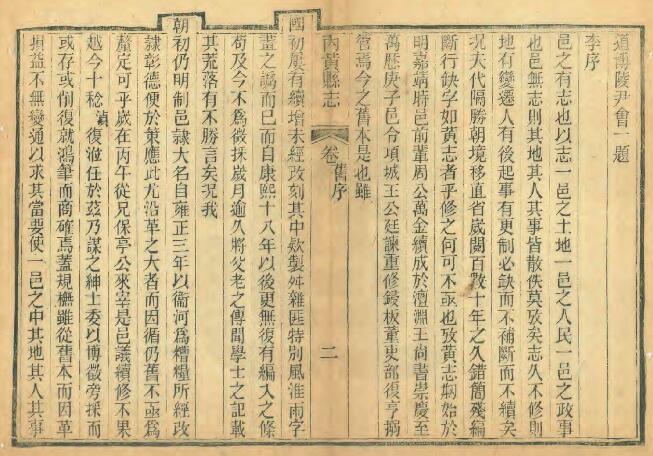 道博陵尹會一題
李序
邑之有志也以志一邑之土地一邑之人民一邑之政事
也邑無志則其地其人其事皆散佚莫攷矣志久不修則
地有變遷人有後起事有更制必缺而不補斷而不續矣
况大代隔勝朝境移直省歲閱百數十年之久錯簡殘編
斷行缺字如黃志者乎修之何可不亟也攷黃志剏始於
明嘉靖時邑前輩周公萬金續成於澶淵王尚書崇慶至
萬歷庚子邑令項城王公廷諫重修鋟板董吏部復亨捐
管焉今之舊本是也雖
內黃縣志
卷
舊序
二
國初屢有續增未經改刻其中欵製舛雜匪特別風淮雨字
畫之譌而已而自康熙十八年以後更無復有編入之條
苟及今不為微採歲月逾久將父老之傳聞學士之記載
其荒落有不勝言矣况我
朝初仍明制邑隸大名自雍正三年以衞河為糟糧所經改
隸彰德便於策應此尤沿革之大者而因循仍舊不亟為
釐定可乎歲在丙午從兄保亭公來宰是邑議續修不果
越今十稔 滇復涖任於茲乃謀之紳士委以博徵旁採而
或存或倒復就鴻筆而商確焉蓋規橅雖從舊本而因革
損益不無變通以求其當要使一邑之中其地其人其事